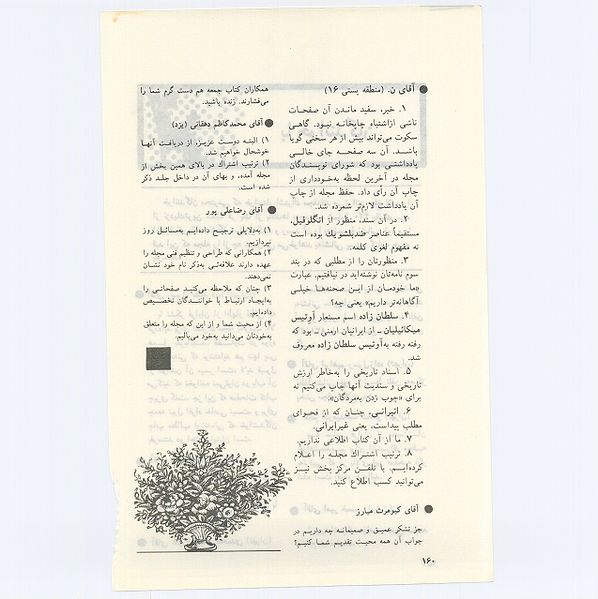 آقای ن. (منطقه پستی ۱۶)
۱. خیر، سفید ماندن آن صفحات
ناشی ازاشتباه چاپخانه نبود. گاهی
سکوت می‌تواند بیش از هر سخنی گویا
باشد. آن سه صفحه جای خالی
یادداشتی بود که شورای نویسندگان
مجله در آخرین لحظه به‌خودداری از
چاپ آن رأی داد. حفظ مجله از چاپ
آن یادداشت لازم‌تر شمرده شد.
۲. در آن سند، منظور از انگلوفیل،
مستقیماً عناصر ضدبلشویك بوده است
نه مفهوم لغوی کلمه.
۳. منظورتان را از مطلبی که در بند
سوم نامه‌تان نوشته‌اید در نیافتیم. عبارت
«ما خودمان از این صحنه‌ها خیلی
آگاهانه‌تر داریم» یعنی چه؟
۴. سلطان زاده اسم مستعار آوتیس
میکائیلیان ـ از ایرانیان ارمنی ـ بود که
رفته رفته به‌آوتیس سلطان زاده معروف
شد.
۵. اسناد تاریخی را به‌خاطر ارزش
تاریخی و سندیت آنها چاپ می‌کنیم نه
برای «چوب زدن به‌مردگان».
۶. انیرانی، چنان که از فحوای
مطلب پیداست، یعنی غیرایرانی.
۷. ما از آن کتاب اطلاعی نداریم.
۸. ترتیب اشتراك مجله را اعلام
کرده‌ایم. با تلفن مرکز پخش نیز
می‌توانید کسب اطلاع کنید.
آقای کیومرث مبارز
جز تشکر عمیق و صمیمانه چه داریم در
جواب آن همه محبت تقدیم شما کنیم؟
همکاران کتاب جمعه هم دست گرم شما را
می‌فشارند. زنده باشید.
آقای محمدکاظم دهقانی (یزد)
۱) البته دوست عزیز، از دریافت آنها
خوشحال خواهیم شد.
۲) ترتیب اشتراك در بالای همین بخش از
مجله آمده، و بهای آن در داخل جلد ذکر
شده است.
آقای رضاعلی پور
۱) به‌دلایلی ترجیح داده‌ایم به‌مسائل روز
نپردازیم.
۲) همکارانی که طراحی و تنظیم فنی مجله را
عهده دارند علاقه‌ئی به‌ذکر نام خود نشان
نمی‌دهند.
۳) چنان که ملاحظه می‌کنید صفحاتی را
به‌ایجاد ارتباط با خوانندگان تخصیص
داده‌ایم.
۴) از محبت شما و از این که مجله را متعلق
به‌خودتان می‌دانید به‌خود می‌بالیم.
۱۶۰